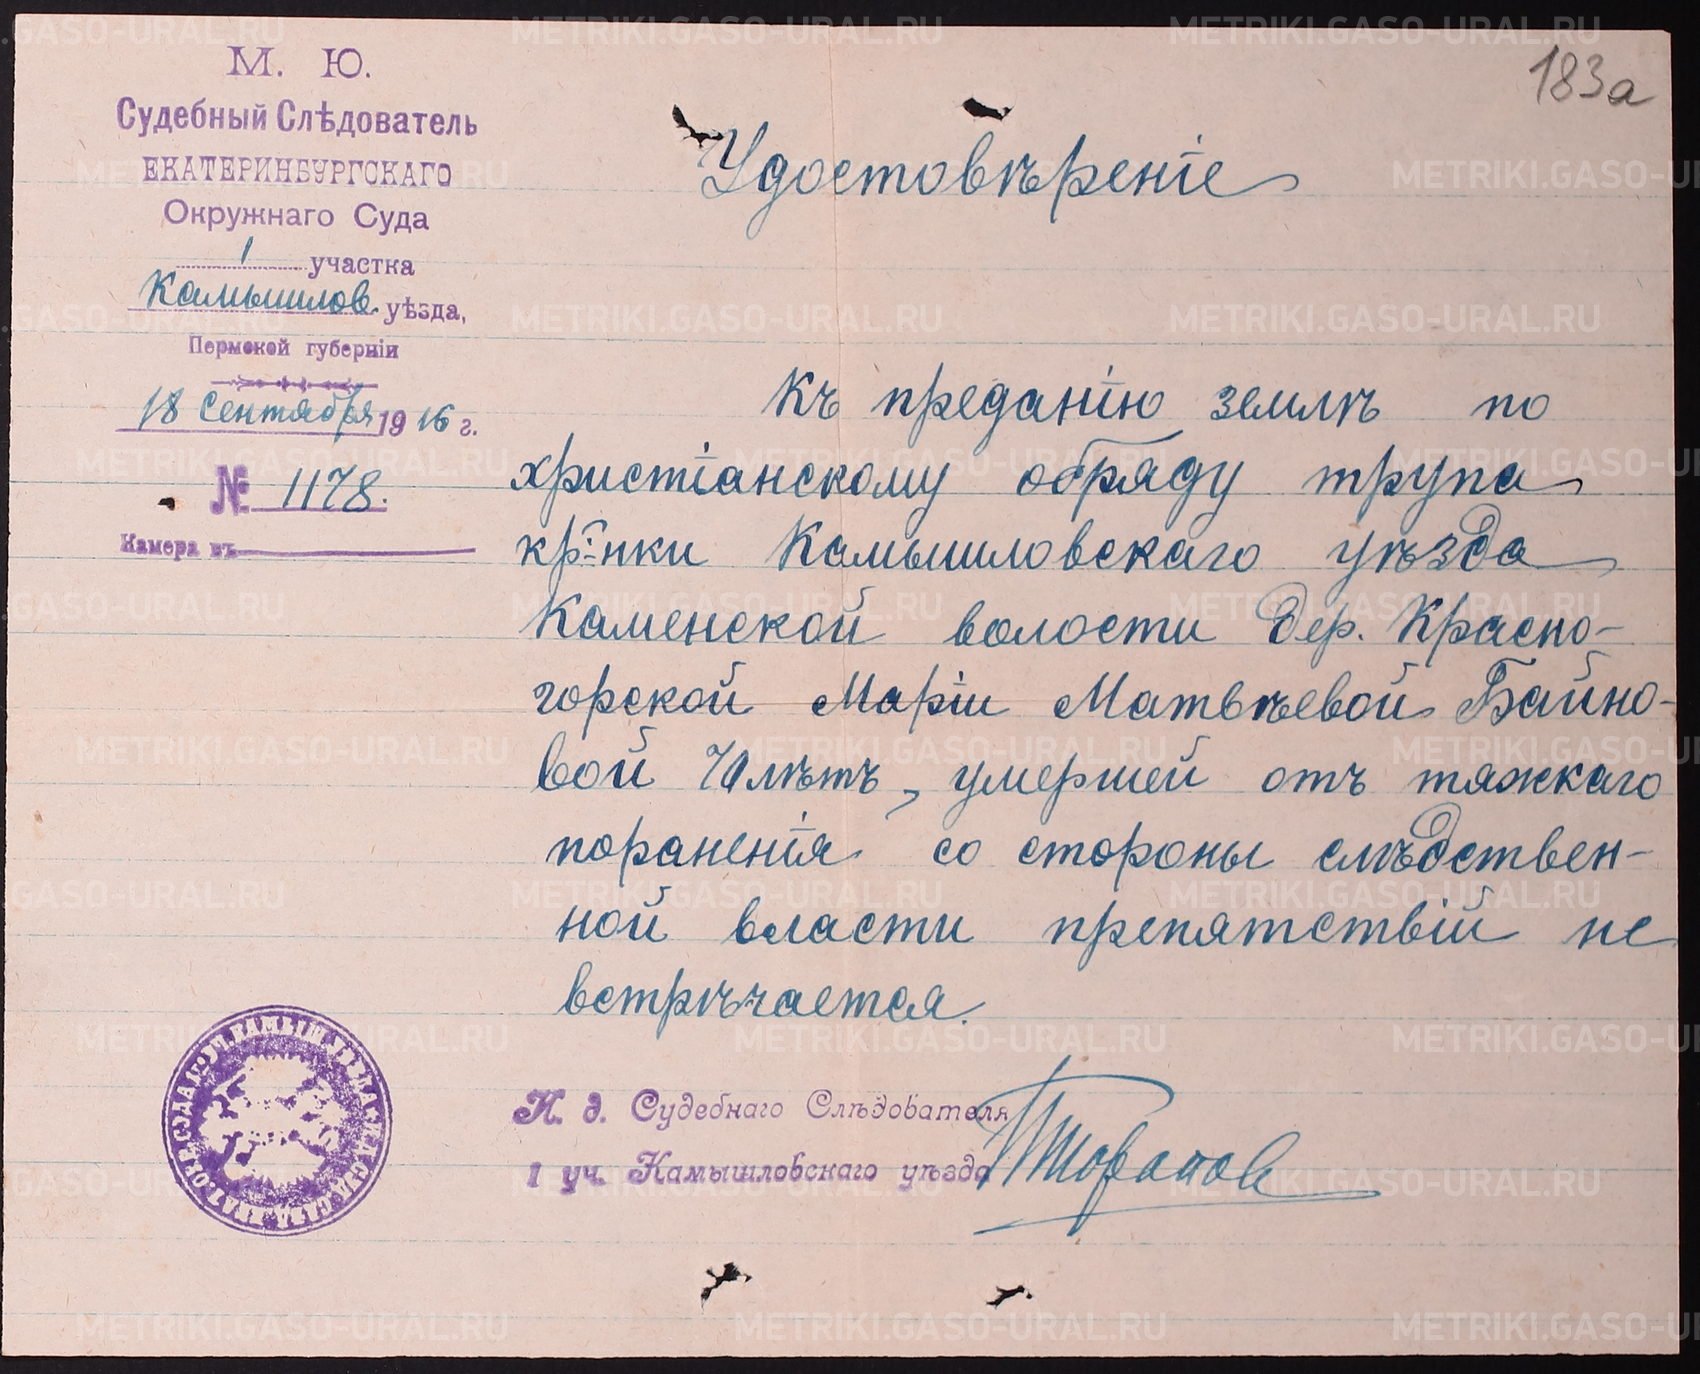 183а
М. Ю.
Судебный Слѣдователь
ЕКАТЕРИНБУРГСКАГО
Окружнаго Суда
1 участка
Камышлов. уѣзда,
Пермской губерніи
18 Сентября 1916 г.
№ 1178.
Камера въ
Удостовѣреніе
Къ преданію землѣ по
христіанскому обряду трупа
кр-нки Камышловскаго уѣзда
Каменской волости дер. Красно-
горской Маріи Матвѣевой Байно-
вой 70 лѣтъ, умершей отъ тяжкаго
пораненія со стороны слѣдствен-
ной власти препятствій не
встрѣчается.
И. д. Судебнаго Слѣдователя
1 уч. Камышловскаго уѣзда
METRIKI.GASO-URAL.RU